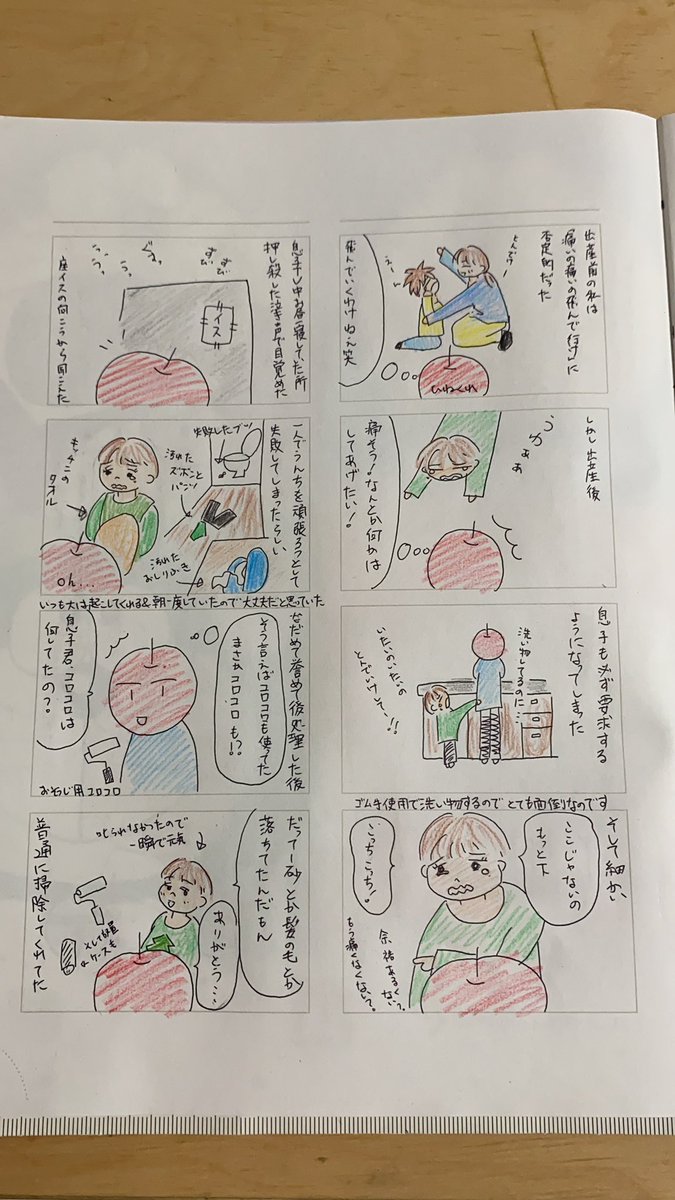 出産前の私は
痛いの痛いの飛んで行けに
否定的だった
とんでけー!
え…
飛んでいくわけねぇ笑
ひねくれ
しかし出産後
うゎぁぁ
痛そう!なんとか何かは
してあげたい!
息子も必ず要求する
ようになってしまった
洗い物してるのに…
いたいのいたいの
とんでいけしてー!!
ゴム手使用で洗い物するのでとても面倒なのです
そして細かい
ここじゃないの
もっと下
こっちこっち!
余裕あるくない?
もう痛くなくないて?
息子と中お昼寝していた所
押し殺した泣き声で目覚めた
すん…
すん…
ぐすっ
うっ
うっ
うっ
イス
座イスの向こうから聞こえた
一人でうんちを頑張ろうとして
失敗してしまったらしい
失敗したブツ
汚れた
ズボンと
パンツ
汚れた
おしりふき
キッチンの
タオル
oh...
いつも大は起こしてくれる&朝一度していたので大丈夫だと思っていた
なだめて誉めて後処理した後
そう言えばコロコロも使ってた
まさかコロコロも!?
息子君、コロコロは
何してたの?
おそうじ用コロコロ
だってー砂とか髪のもとか
落ちてたんだもん
叱られなかったので
一瞬で元気
ありがとう…
そして放置
ケースも
普通に掃除してくれてた